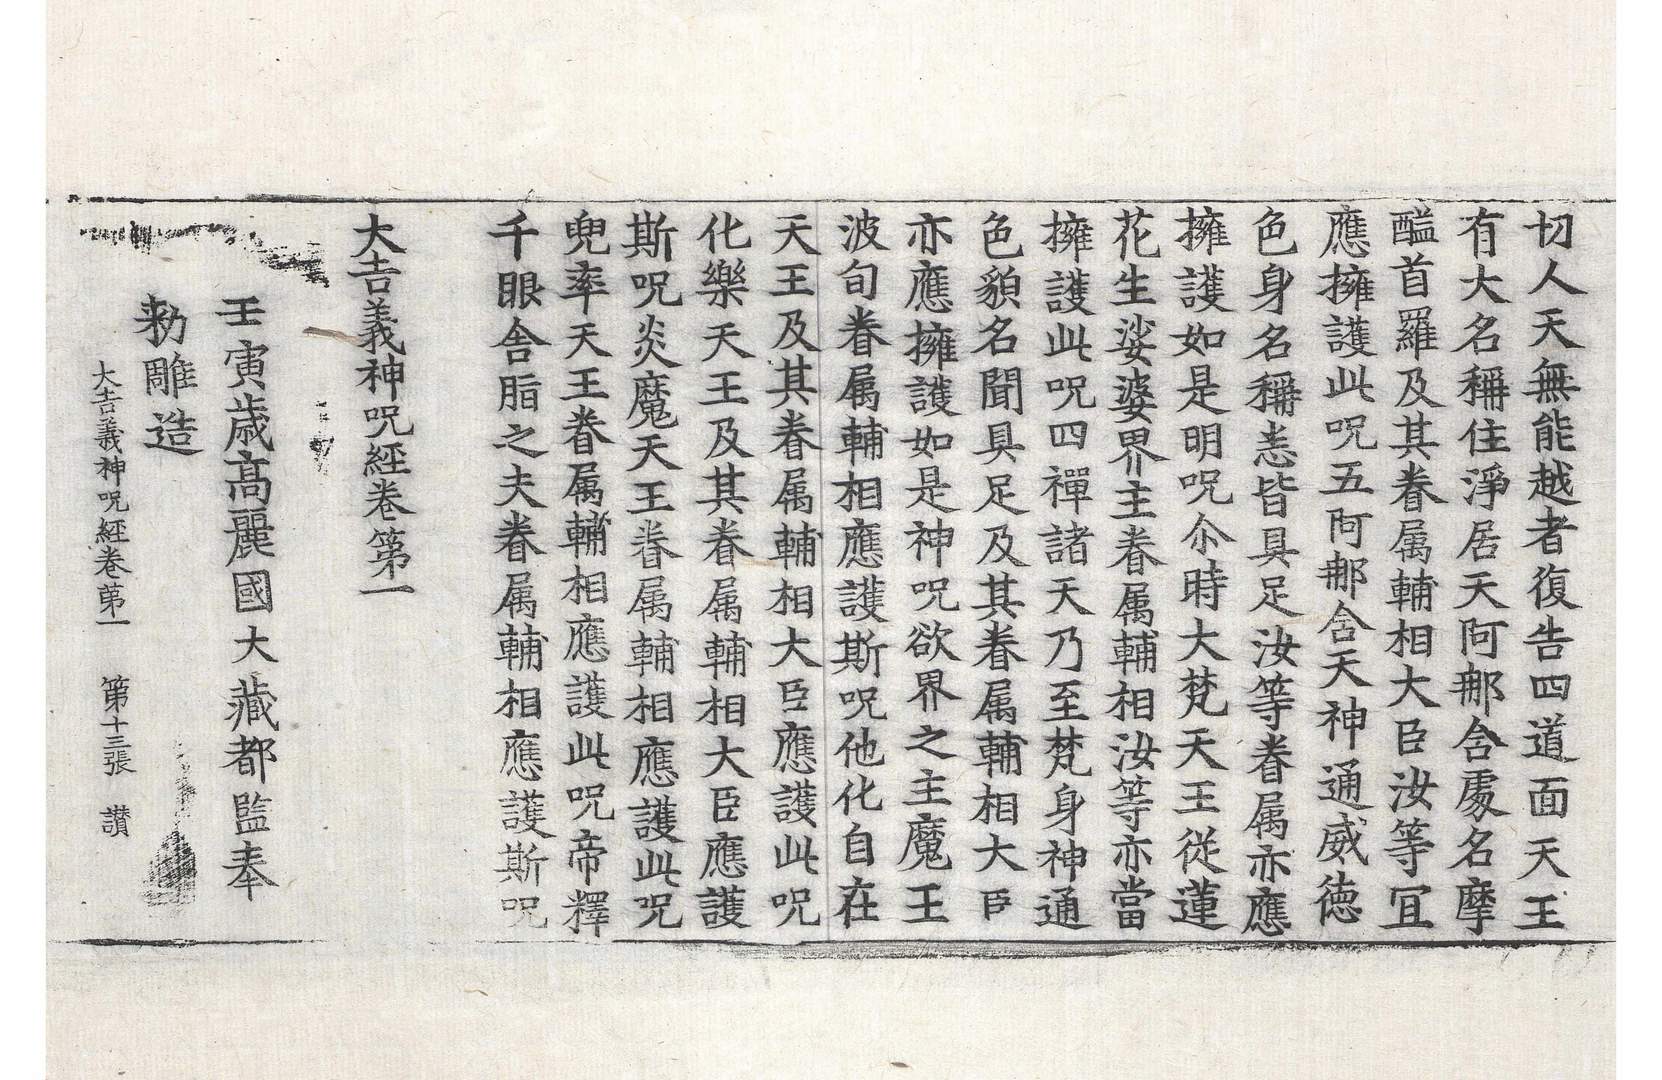 切人天無能越者復告四道面天王
有大名稱住淨居天阿那含處名摩
醯首羅及其眷属輔相大臣汝等冝
應擁護此呪五阿那含天神通威德
色身名稱恙皆具足汝等眷属亦應
擁護如是明呪尒時大梵天王從蓮
花生娑婆界主眷属輔相汝等亦當
擁護此呪四禪諸天乃至梵身神通
色貌名聞具足及其眷属輔相大臣
亦應擁護如是神呪欲界之主魔王
波旬眷属輔相應護斯呪他化自在
天王及其眷属輔相大臣應護此呪
化樂天王及其眷属輔相大臣應護
斯呪炎魔天王眷属輔相應護此呪
兜率天王眷属輔相應護此呪帝釋
千眼舎脂之夫眷属輔相應護斯呪
大吉義神呪經卷第一
壬寅歳高麗國大藏都監奉
勑雕造
大吉義神呪經卷苐一 第十三張 讃